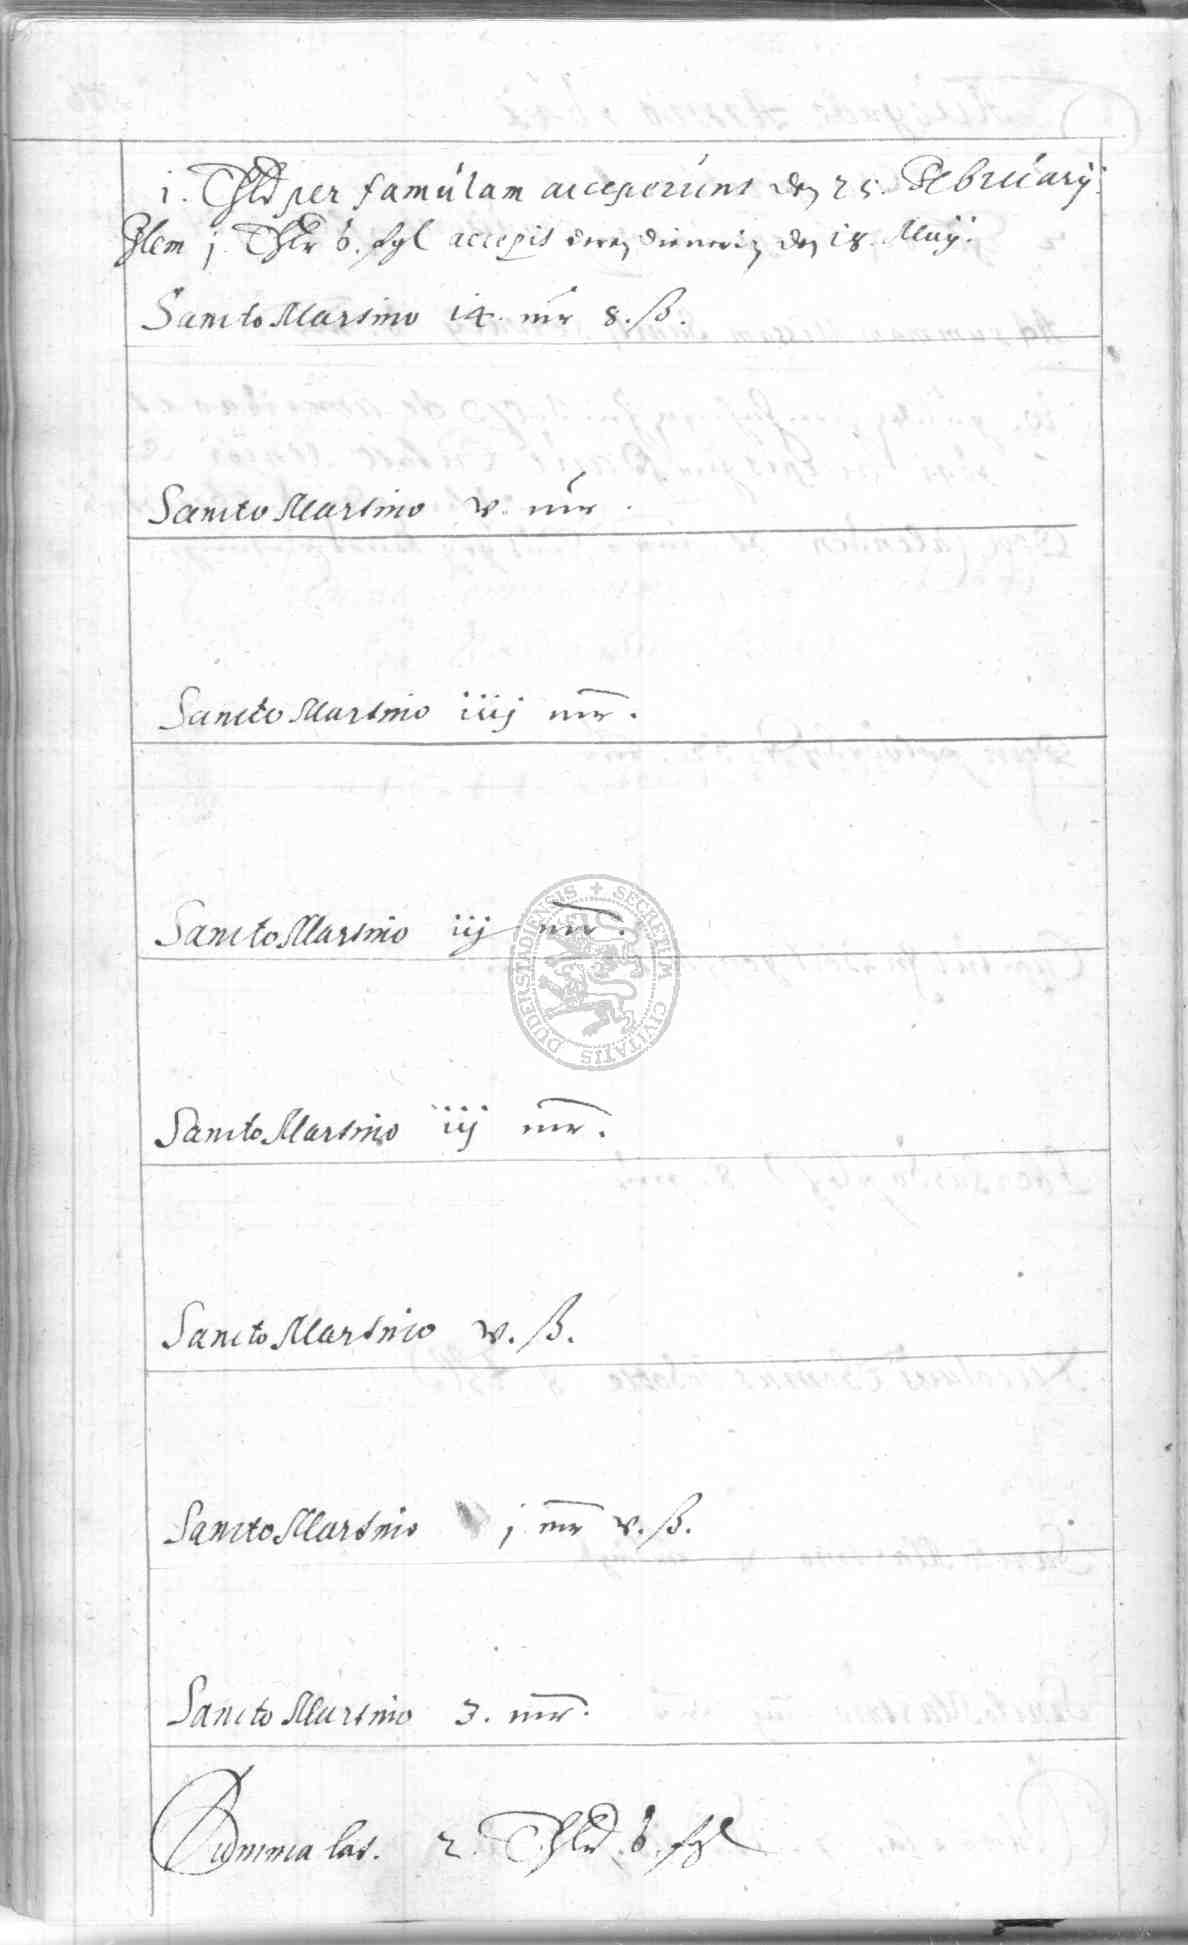 i. Thlr per famulam acceperunt den 25. February.
Item j. Thlr 6. sgl accepit den 18. Maij.
Sancto Martino 14. mr 8. ß.
Sancto Martino v. mr.
Sancto Martino iiij mr.
Sancto Martino iij mr.
SECRETUM CIVITATIS DUDERSTADIENSIS
Sancto Martino iij mr.
Sancto Martino v. ß.
Sancto Martino j mr v. ß.
Sancto Martino 3. mr.
Summa lat. 2. Thlr. 6. sgl